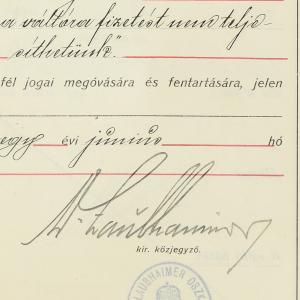 a váltóra fizetést nem telje-
síthetünk".
fél jogai megóvására és fentartására, jelen
egy évi június hó
Dr Laubhaimer
kir. közjegyző.
LAUBHAIMER OSZK